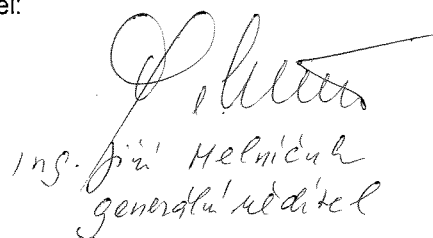 el:
Ing. Jiří Melničuk
generální ředitel